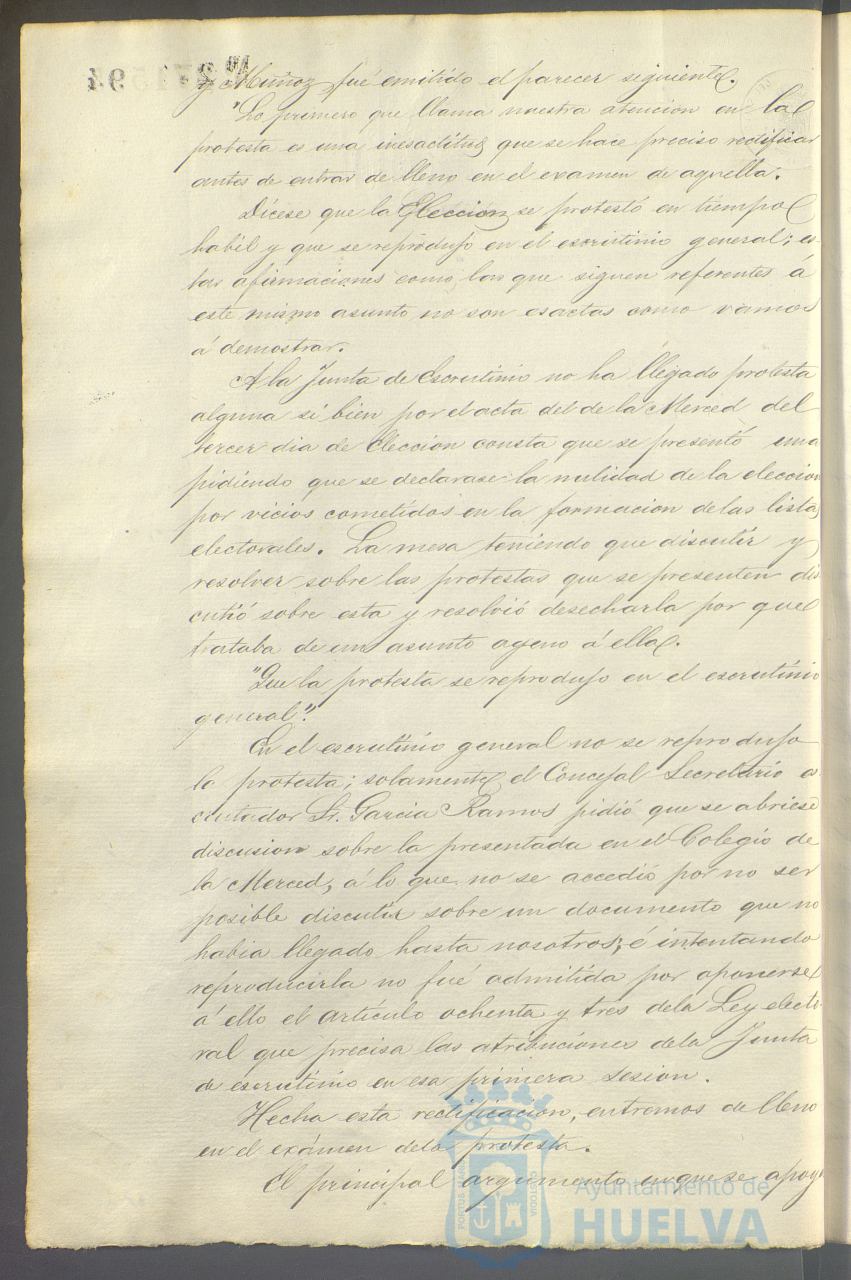 y Muñoz, fué emitido el parecer siguiente.
"Lo primero que llama nuestra atencion en la
protesta es una inesactitud que se hace preciso rectificar
antes de entrar de lleno en el examen de aquella.
Dícese que la Elección se protestó en tiempo
habil y que se reprodujo en el escrutinio general; es-
tas afirmaciones como las que siguen referentes á
este mismo asunto no son esactas como vamos
á demostrar.
Á la Junta de Escrutinio no ha llegado protesta
alguna si bien por el acta del de la Merced del
tercer dia de Elección consta que se presentó una
pidiendo que se declarase la nulidad de la eleccion
por vicios cometidos en la formacion de las listas
electorales. La mesa teniendo que discutir y
resolver sobre las protestas que se presenten dis
cutió sobre esta y resolvió desecharla por que
trataba de un asunto ageno á ella.
"Que la protesta se reprodujo en el escrutinio
general".
En el escrutinio general no se reprodujo
la protesta; solamente el Concejal Secretario es
crutador Sr. Garcia Ramos pidió que se abriese
discusion sobre la presentada en el Colegio de
la Merced, á lo que no se accedió por no ser
posible discutir sobre un documento que no
habia llegado hasta nosotros; é intentando
reproducirla no fué admitida por oponerse
á ello el artículo ochenta y tres de la Ley electo
ral que precisa las atribuciones de la Junta
de escrutinio en esa primera sesion.
Hecha esta rectificacion, entremos de lleno
en el exámen de la protesta.
El principal argumento en que se apoy
Ayuntamiento de
HUELVA
PORTUS MARIS
CUSTODIA